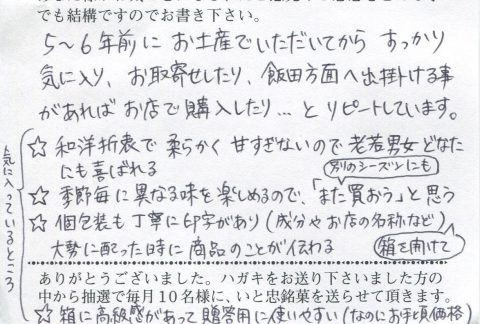 でも結構ですのでお書き下さい。
5〜6年前に お土産でいただいてから すっかり
気に入り、お取寄せしたり、飯田方面へ出掛ける事
があれば お店で購入したり…と リピートしています。
気に入っているところ
☆ 和洋折衷で 柔らかく 甘すぎないので 老若男女どなた
にも喜ばれる
別のシーズンにも
☆ 季節毎に異なる味を楽しめるので、「また買おう」と思う
☆ 個包装も丁寧に印字があり(成分やお店の名称など)
大勢に配った時に商品のことが伝わる
箱を開けて
ありがとうございました。ハガキをお送り下さいました方の
中から抽選で毎月10名様に、いと忠銘菓を送らせて頂きます。
☆ 箱に高級感があって 贈答用に使いやすい(なのにお手頃価格)